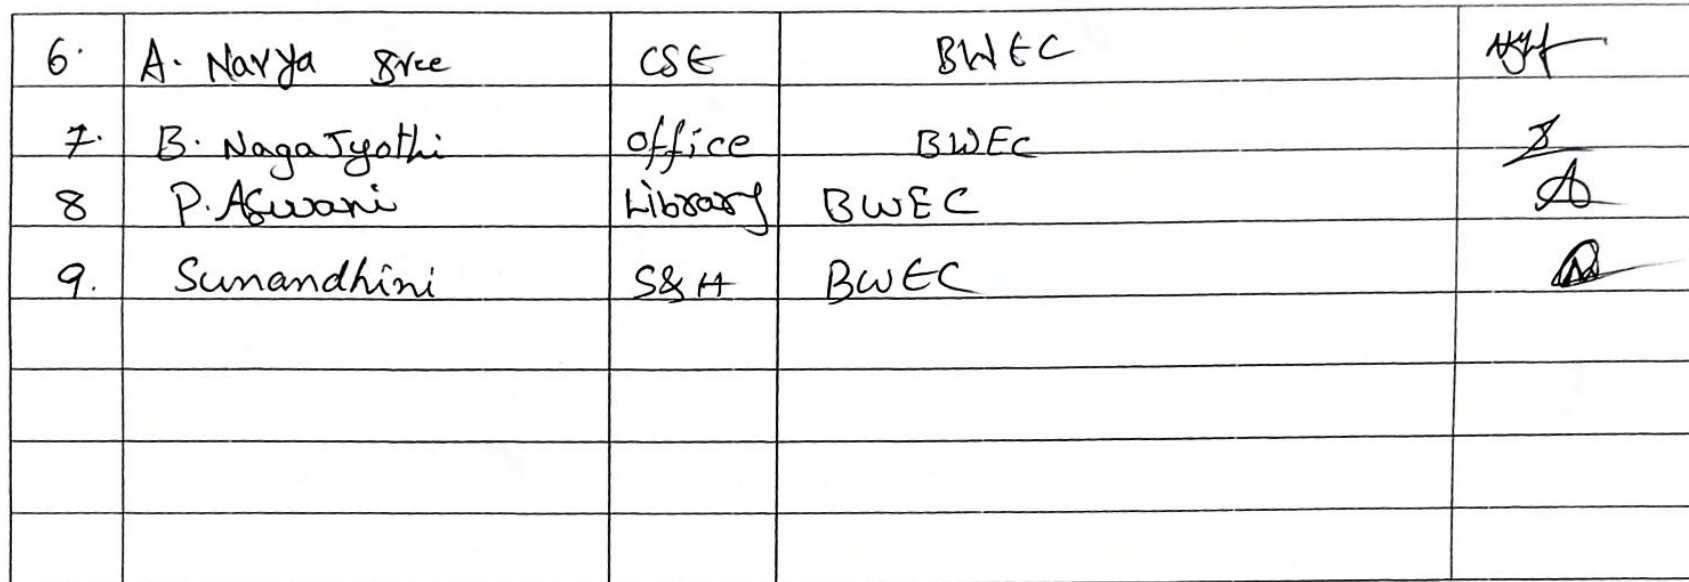 6. A. Navya Sree CSE BWEC
7. B. Naga Jyothi office BWEC
8 P. Aswani Library BWEC
9. Sunandhini S&H BWEC